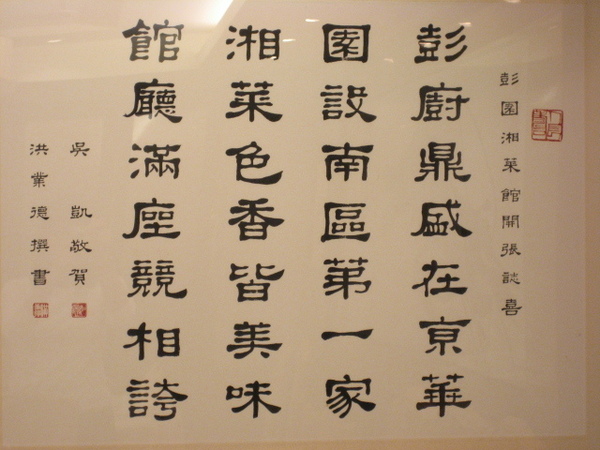 彭園湘菜館開張誌喜
彭廚鼎盛在京華
園設南區第一家
湘菜色香皆美味
館廳滿座競相誇
吳凱敬賀
洪業德撰書